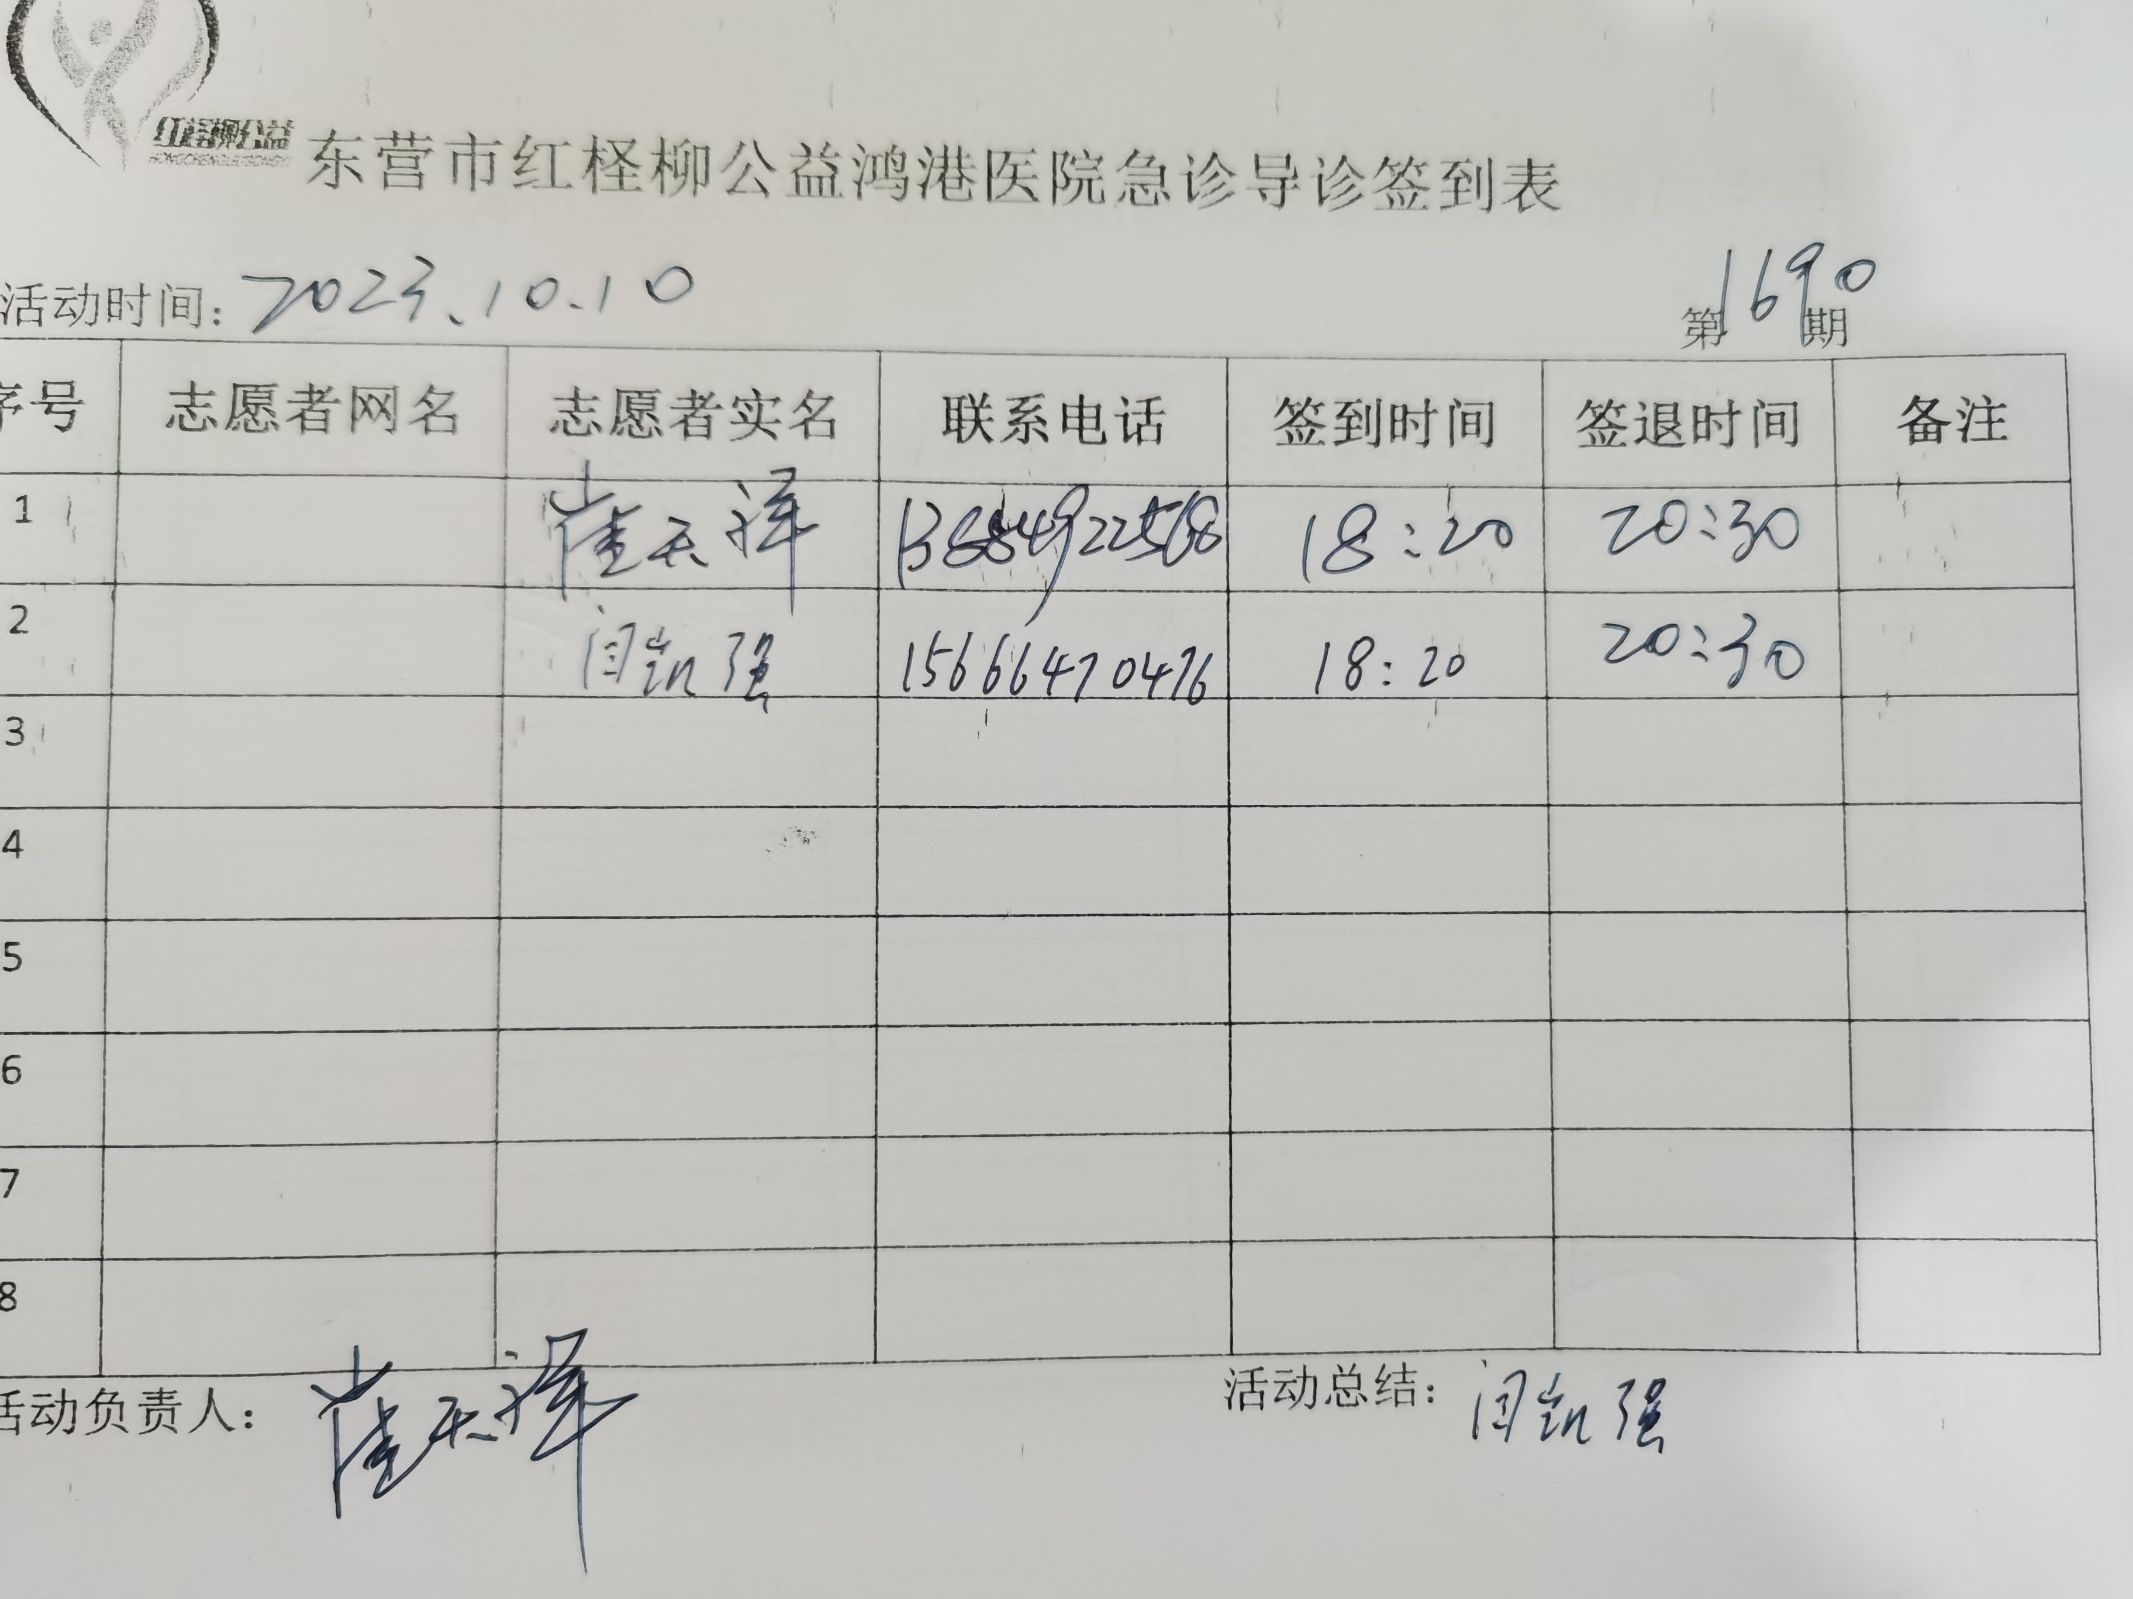 红柽柳公益
东营市红柽柳公益鸿港医院急诊导诊签到表
活动时间：2023.10.10 第1690期
序号 志愿者网名 志愿者实名 联系电话 签到时间 签退时间 备注
1 崔天泽 18:20 20:30
2 闫凯强 15666470476 18:20 20:30
3
4
5
6
7
8
活动负责人：崔天泽 活动总结：闫凯强